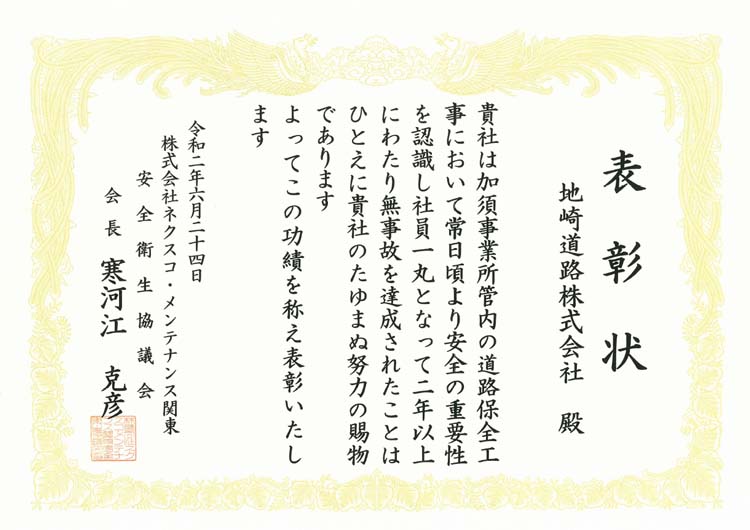 表彰状
地崎道路株式会社 殿
貴社は加須事業所管内の道路保全工
事において常日頃より安全の重要性
を認識し社員一丸となって二年以上
にわたり無事故を達成されたことは
ひとえに貴社のたゆまぬ努力の賜物
であります
よってこの功績を称え表彰いたし
ます
令和二年六月二十四日
株式会社ネクスコ・メンテナンス関東
安全衛生協議会
会長 寒河江 克彦